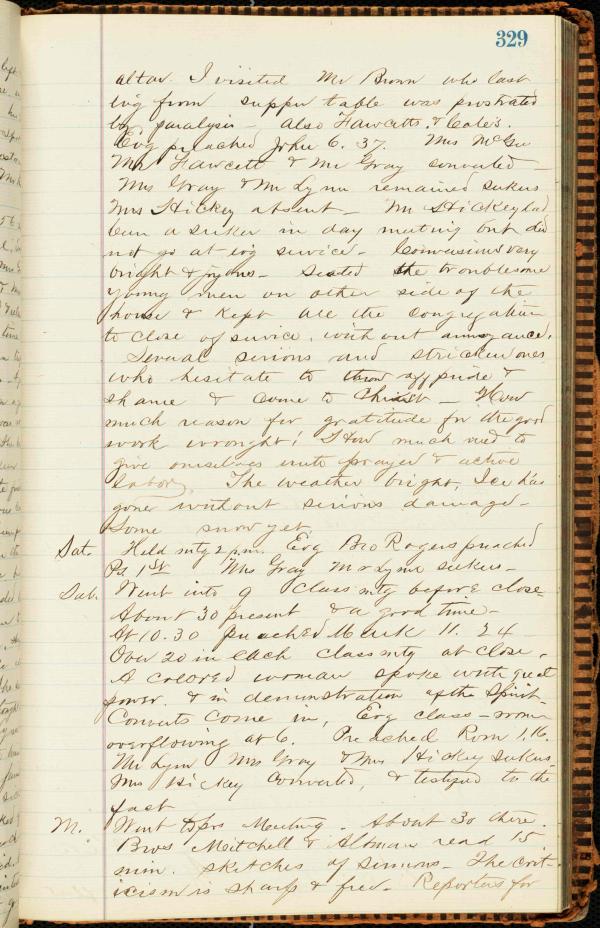 329
altar. I visited Mr Brown who last
evg from supper table was prostrated
by paralysis - also Fawcetts & Cole's.
Evg preached John 6. 37. Mrs McGee
Mr Fawcett & Mr Gray converted -
Mrs Gray & Mr Lynn remained seekers
Mrs Hickey absent - Mr Hickey had
been a seeker in day meeting but did
not go at evg service - Conversions very
bright & joyous - Seated the troublesome
young men on other side of the
house & kept all the congregation
to close of service, without annoyance.
Several serious and stricken ones
who hesitate to throw off pride &
shame & come to Christ - How
much reason for gratitude for the good
work wrought! How much need to
give ourselves unto prayer & active
labor. The weather bright, Ice has
gone without serious damage -
Some snow yet
Sat. Held mtg 2 p.m. Evg Bro Rogers preached
Ps. 1st Mrs Gray Mr Lynn seekers -
Sab. Went into 9 class mtg before close
About 30 present & a good time -
At 10.30 preached Mark 11. 24 -
Over 20 in each class mtg at close.
A colored woman spoke with great
power & in demonstration of the Spirit -
Converts come in, Evg class - room
overflowing at 6. Preached Rom 1.16.
Mr Lynn Mrs Gray & Mrs Hickey seekers,
Mrs Hickey converted, & testified to the
fact
M. Went to prs Meeting. About 30 there.
Bros Mitchell & Altman read 15
min. sketches of sermons - The crit-
icism is sharp & free - Reporters for